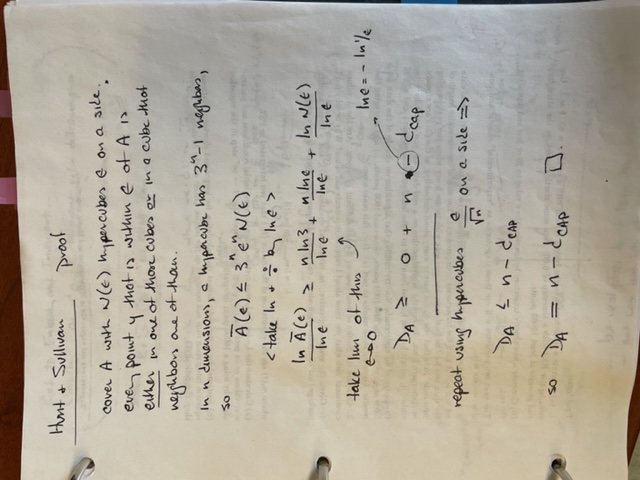 Hunt & Sullivan proof
cover A with N(ϵ) hypercubes ϵ on a side.
every point y that is within ϵ of A is
either in one of those cubes or in a cube that
neighbors one of them.
In n dimensions, a hypercube has 3ⁿ-1 neighbors,
so
Ā(ϵ) ≤ 3ⁿ ϵⁿ N(ϵ)
<take ln & ÷ by ln ϵ>
ln Ā(ϵ) / ln ϵ ≥ n ln 3 / ln ϵ + n ln ϵ / ln ϵ + ln N(ϵ) / ln ϵ
take lim of this
ϵ→0
ln ϵ = - ln 1/ϵ
D_A ≥ 0 + n - d_cap
repeat using hypercubes ϵ/√n on a side ⇒
D_A ≤ n - d_CAP
so D_A = n - d_CAP □.